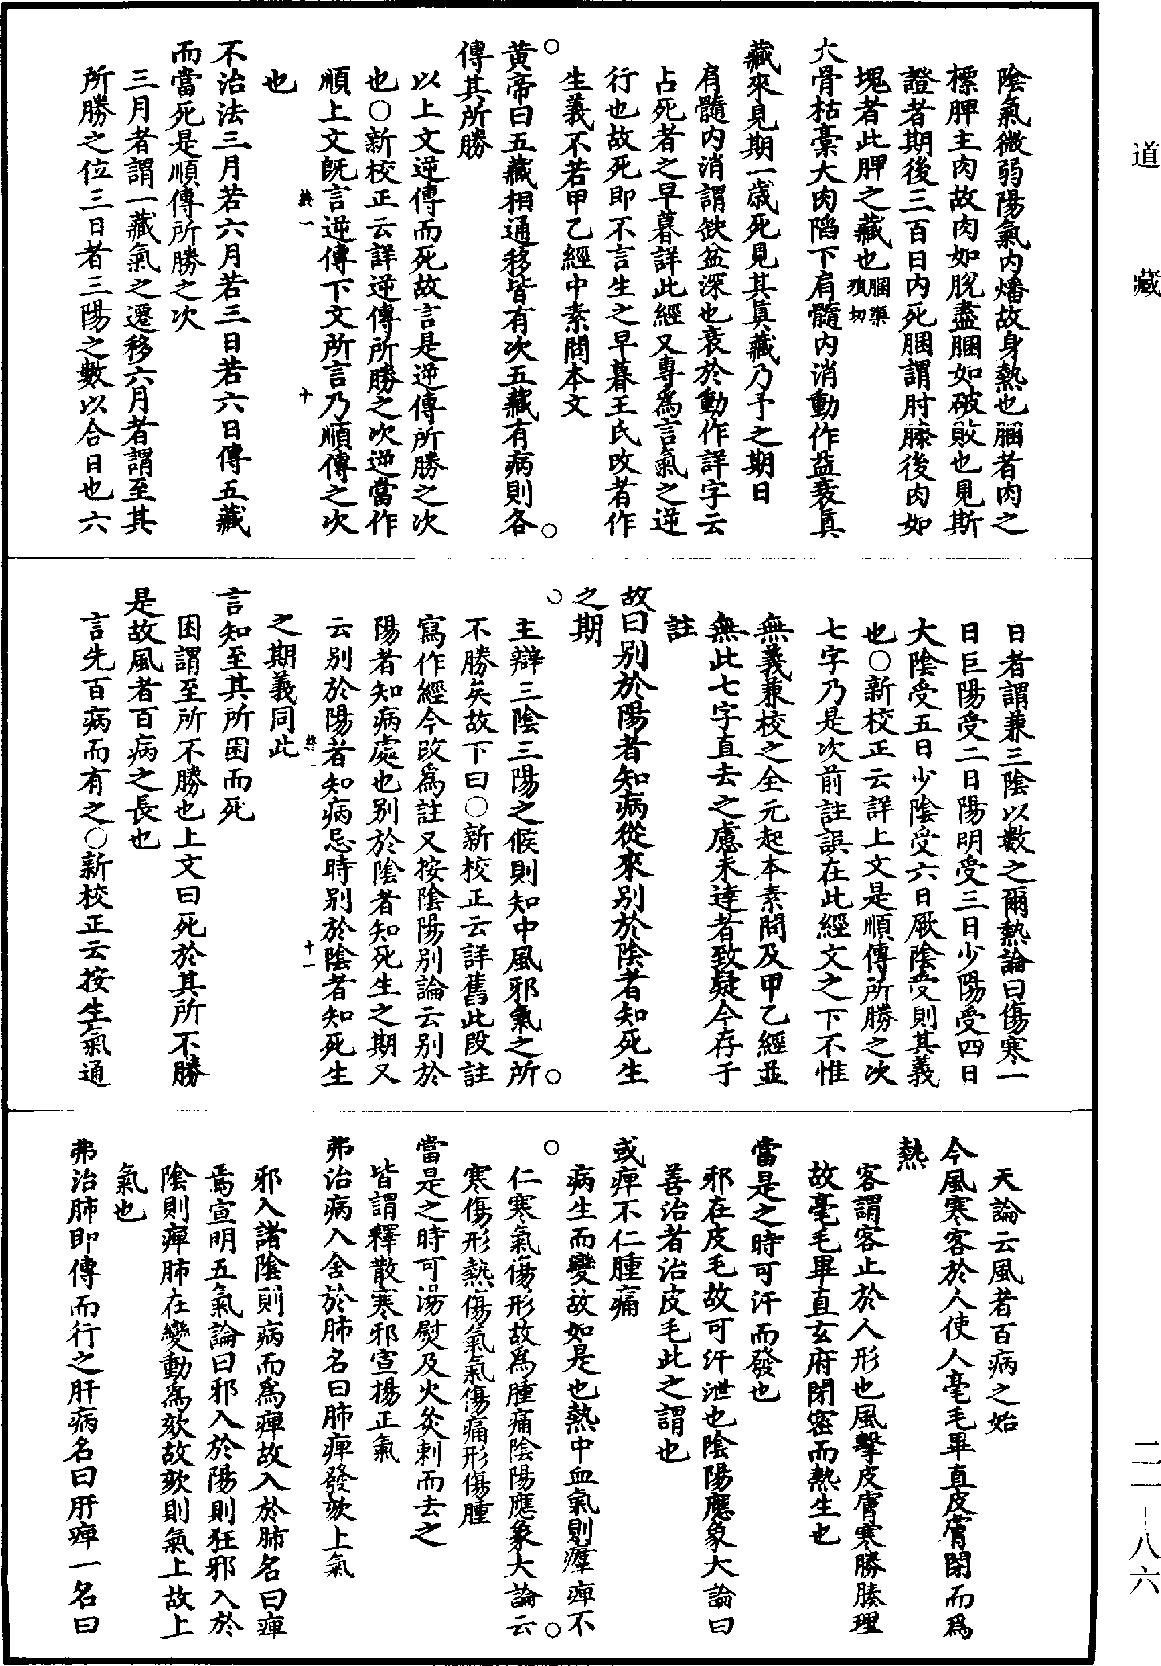 陰氣微弱陽氣內燔故身熱也䐃者肉之
標脾主肉故肉如脫盡䐃如破敗也見斯
證者期後三百日內死䐃謂肘膝後肉如
塊者此脾之藏也
大骨枯槁大肉陷下肩髓內消動作益衰真
藏來見期一歲死見其真藏乃予之期日
肩髓內消謂缺盆深也衰於動作詳字云
占死者之早暮詳此經又專爲言氣之逆
行也故死即不言生之早暮王氏改者作
生義不若甲乙經中素問本文
黃帝曰五藏相通移皆有次五藏有病則各
傳其所勝
以上文逆傳而死故言是逆傳所勝之次
也○新校正云詳逆傳所勝之次逆當作
順上文既言逆傳下文所言乃順傳之次
也
不治法三月若六月若三日若六日傳五藏
而當死是順傳所勝之次
三月者謂一藏氣之遷移六月者謂至其
所勝之位三日者三陽之數以合日也六
日者謂兼三陰以數之爾熱論曰傷寒一
日巨陽受二日陽明受三日少陽受四日
大陰受五日少陰受六日厥陰受則其義
也○新校正云詳上文是順傳所勝之次
七字乃是次前註誤在此經文之下不惟
無義兼校之全元起本素問及甲乙經並
無此七字直去之慮未達者致疑今存于
註
故曰別於陽者知病從來別於陰者知死生
之期
主辯三陰三陽之候則知中風邪氣之所
不勝矣故下曰○新校正云詳舊此段註
寫作經今改爲註又按陰陽別論云別於
陽者知病處也別於陰者知死生之期又
云別於陽者知病忌時別於陰者知死生
之期義同此
言知至其所困而死
困謂至所不勝也上文曰死於其所不勝
是故風者百病之長也
言先百病而有之○新校正云按生氣通
天論云風者百病之始
今風寒客於人使人毫毛畢直皮膚閉而爲
熱
客謂客止於人形也風擊皮膚寒勝腠理
故毫毛畢直玄府閉密而熱生也
當是之時可汗而發也
邪在皮毛故可汗泄也陰陽應象大論曰
善治者治皮毛此之謂也
或痺不仁腫痛
病生而變故如是也熱中血氣則𤸷痺不
仁寒氣傷形故爲腫痛陰陽應象大論云
寒傷形熱傷氣氣傷痛形傷腫
當是之時可湯熨及火灸刺而去之
皆謂釋散寒邪宣揚正氣
弗治病入舍於肺名曰肺痺發欬上氣
邪入諸陰則病而爲痺故入於肺名曰痺
焉宣明五氣論曰邪入於陽則狂邪入於
陰則痺肺在變動爲欬故欬則氣上故上
氣也
弗治肺即傳而行之肝病名曰肝痺一名曰
道藏
二一－八六